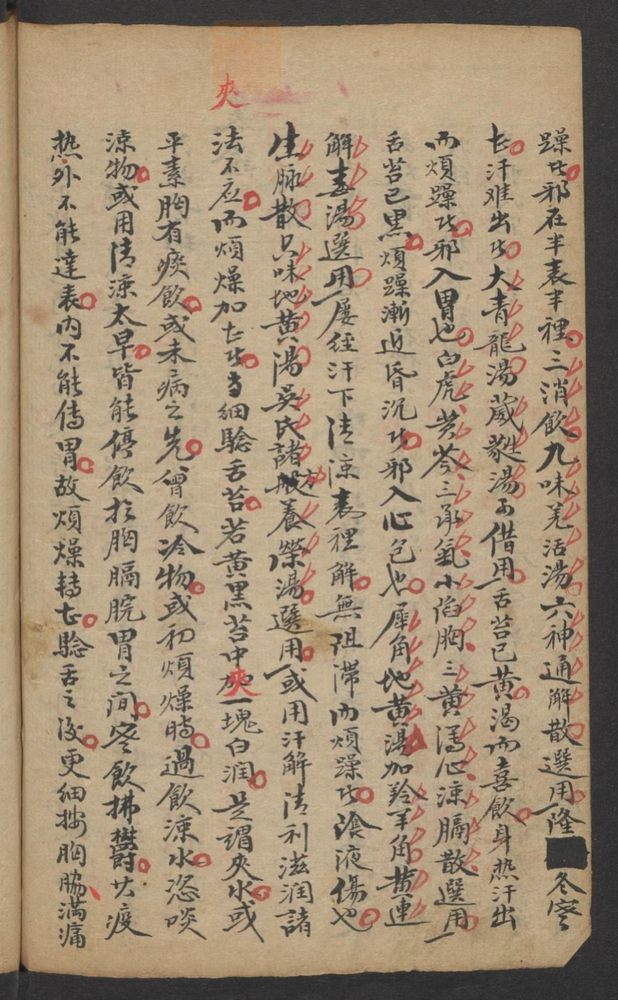 躁此邪在半表半裡三消飲九味羌活湯六神通解散選用隆冬寒
甚汗难出此大青龍湯葳蕤湯可借用舌苔已黄渴而喜飲身热汗出
而煩躁此邪入胃也白虎黄芩三承氣小陷胸三黄瀉心涼膈散選用一
舌苔已黑煩躁漸近昏沉此邪入心包也犀角地黄湯加羚羊角黄連
解毒湯選用一屡经汗下清涼表裡解無阻滞而煩躁此陰液傷也
生脉散六味地黄湯吳氏諸般養榮湯選用一或用汗解清利滋润諸
法不应而煩燥加甚此当细驗舌苔若黄黑苔中夾一塊白润是謂夾水或
平素胸有痰飲或未病之先曾飲冷物或初煩燥時過飲涼水恣啖
涼物或用清涼太早皆能停飲扵胸膈脘胃之间寒飲拂欝其疫
热外不能達表内不能傳胃故煩燥轉甚驗舌之後更细按胸脇滿痛
夾